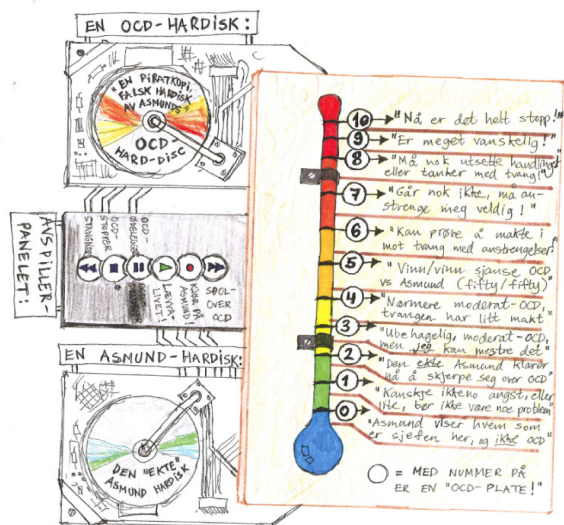 EN OCD-HARDISK:
"EN PIRATKOPI,
FALSK HARDISK
AV ASMUNDS"
OCD-
HARD-DISC
AVSPILLER-
PANELET:
STANGNER
OCD-
STOPPER
OCD-
ØDELEGGER
LÆVVA
LIVET!
KJØR PÅ
ASMUND!
SPOL-
OVER
OCD
EN ASMUND-HARDISK:
DEN "EKTE"
ASMUND HARDISK
10 "Nå er det helt stopp!"
9 "Er meget vanskelig!"
8 "Må nok utsette handlinger
eller tanker med tvang!"
7 "Går nok ikke, må an-
strenge meg veldig!"
6 "Kan prøve å makte i
mot tvang med anstrengelser"
5 "Vinn/vinn sjanse OCD
vs Asmund (fifty/fifty)
4 "Nærmere moderat-OCD,
tvangen har litt makt"
3 "Ubehagelig, moderat-OCD,
men jeg kan mestre det"
2 "Den ekte Asmund klarer
nå å skjerpe seg over OCD"
1 "Kanskje ikkeno angst, eller
lite, bør ikke være noe problem"
0 "Asmund viser hvem som
er sjefen her, og ikke OCD"
= MED NUMMER PÅ
ER EN "OCD-PLATE!"